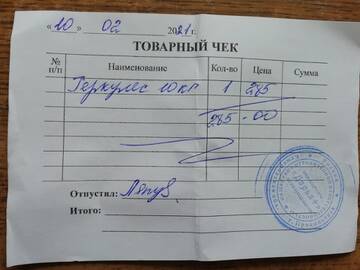 « 10 » 02 2021 г.
ТОВАРНЫЙ ЧЕК
№ п/п Наименование Кол-во Цена Сумма
Геркулес 10кг 1 285
285-00
Отпустил:
Итого: